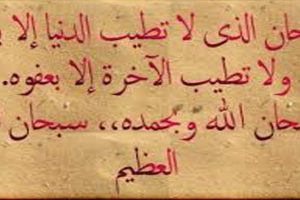 حان الذى لا تطيب الدنيا إلا
ولا تطيب الآخرة إلا بعفوه.
حان الله وبحمده،، سبحان
العظيم